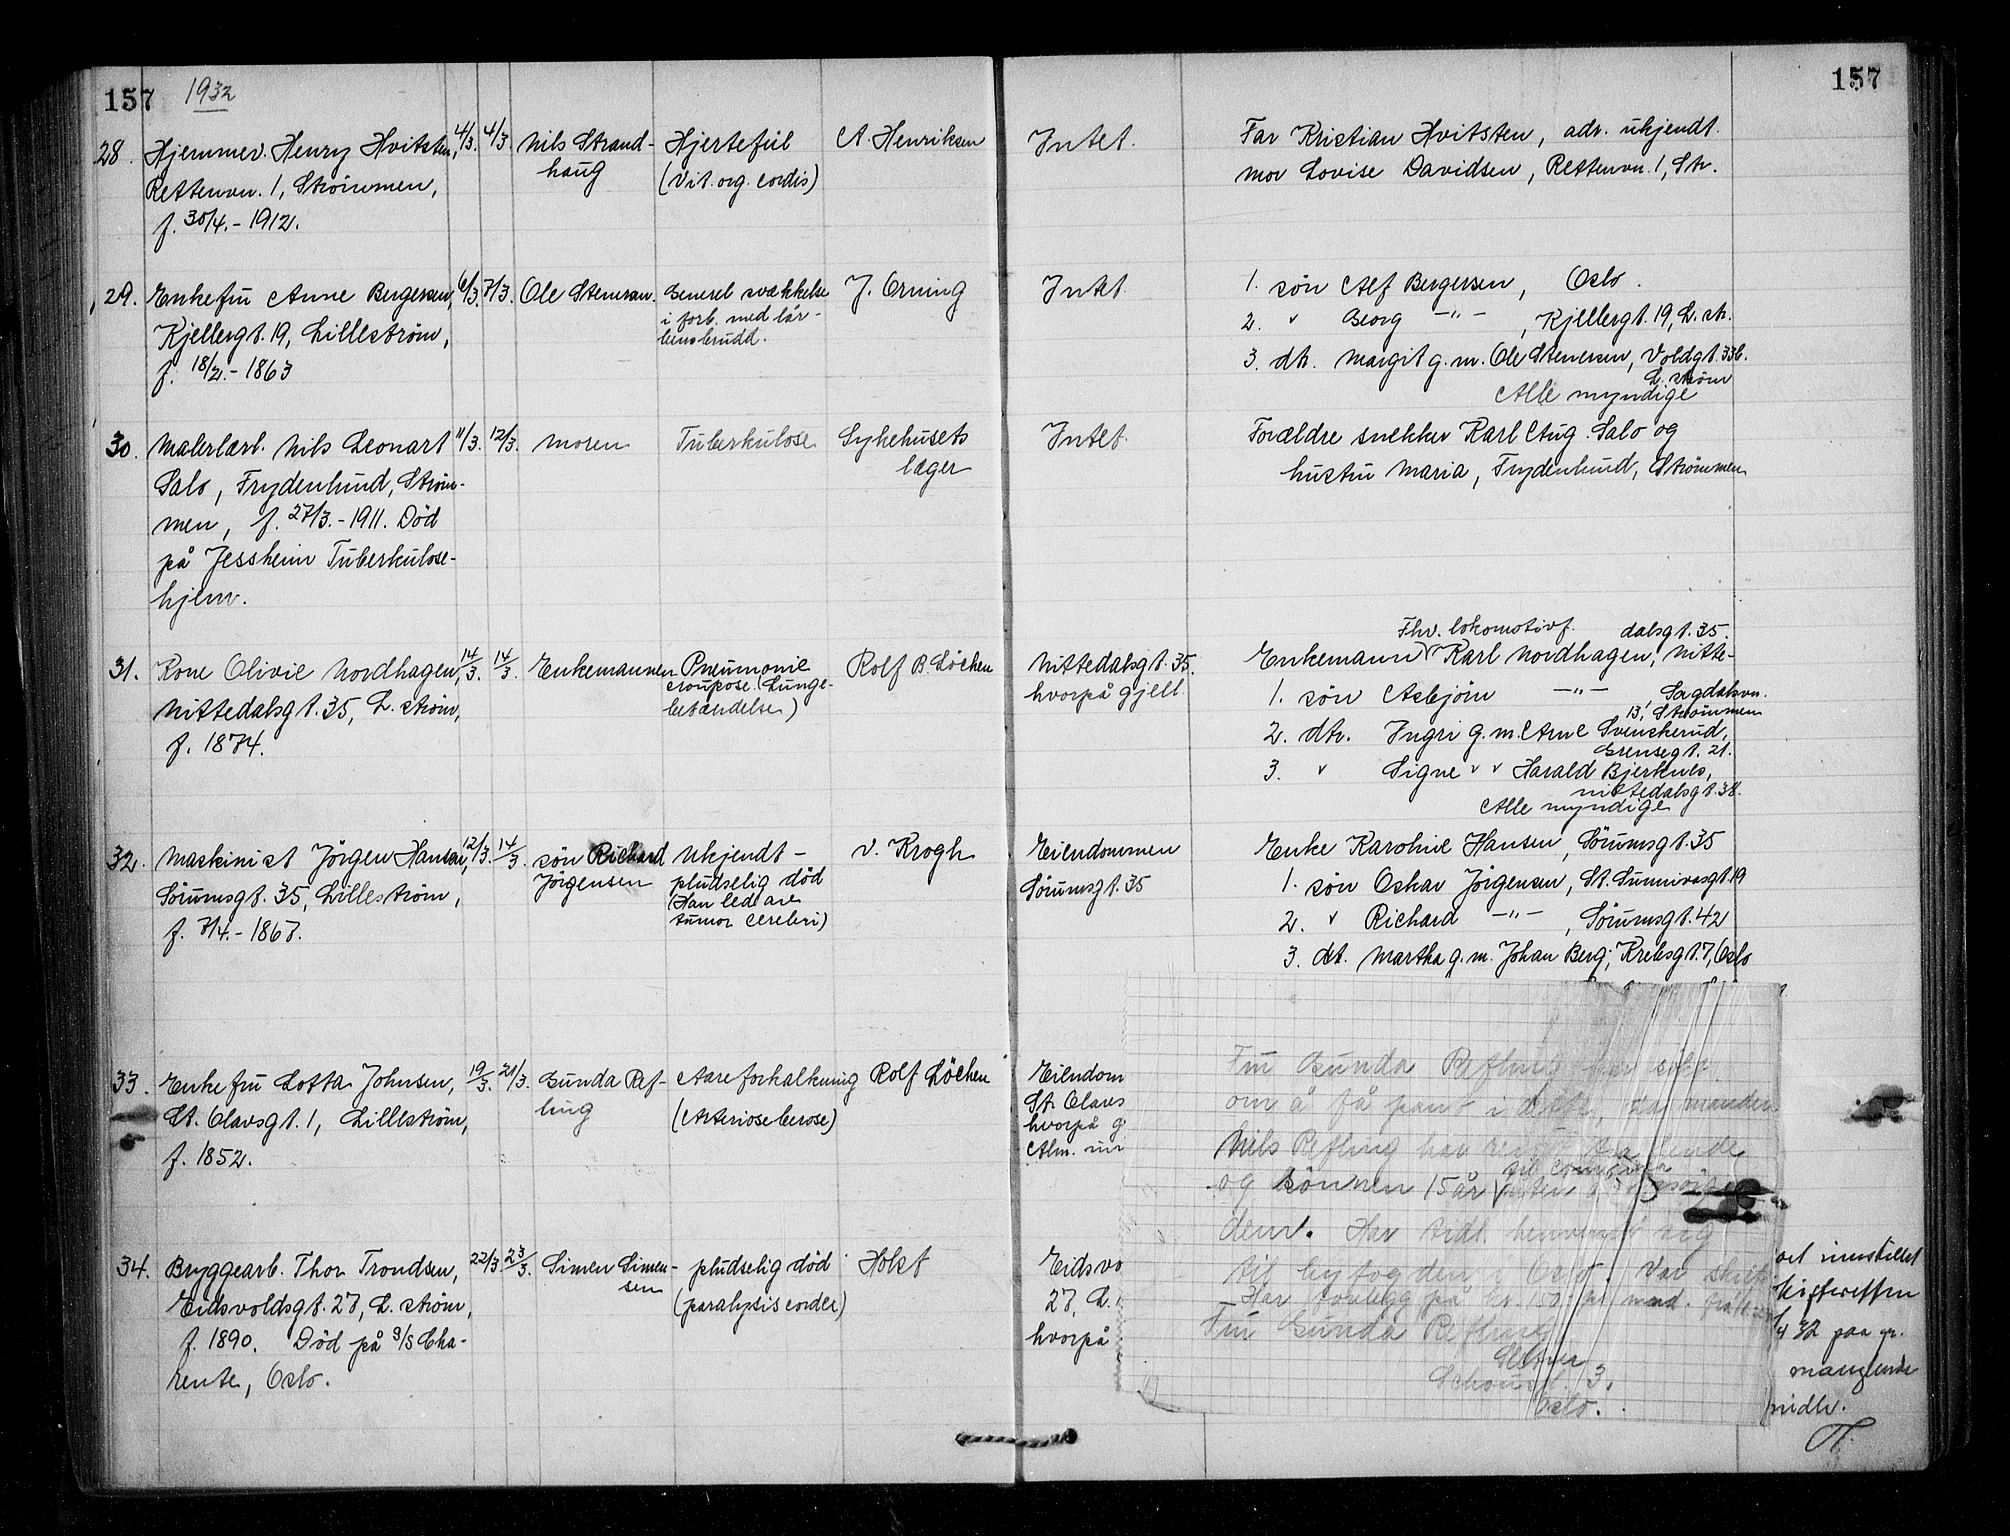 157 1932 157
28. Hjemmev. Henry Hvitsten, 4/3. 4/3. Nils Strand- Hjertefeil A. Henriksen Intet. Far Kristian Hvitsten, adr. ukjendt.
Rettenvn. 1, Strømmen, haug (Vit. org. cordis) mor Lovise Davidsen, Rettenvn. 1, Str.
f. 30/4. - 1912.
29. Enkefru Anne Bergersen, 6/3. 7/3. Ole Stenersen. Generel svækkelse J. Orning Intet. 1. søn Alf Bergersen, Oslo.
Kjellergt. 19, Lillestrøm, i forb. med lår- 2. " Georg -"- , Kjellergt. 19, L. str.
f. 18/2. - 1863 bensbrudd. 3. dtr. Margit g. m. Ole Stenersen, Voldgt. 33b.
L. strøm
Alle myndige
30. Malerlærl. Nils Leonart 11/3. 12/3. moren Tuberkulose Sykehusets Intet. Forældre snekker Karl Aug. Salo og
Salo, Frydenlund, Strøm- læger hustru Maria, Frydenlund, Strømmen
men, f. 27/3. - 1911. Død
på Jessheim Tuberkulose-
hjem.
Fhv. lokomotivf. dalsgt. 35.
31. Kone Olivie Nordhagen, 14/3. 14/3. Enkemannen Pneumonie Rolf B. Löchen Nittedalsgt. 35. Enkemann Karl Nordhagen, Nitte-
croupose. (Lunge- hvorpå gjell. 1. søn Asbjörn -"- Sagdalsvn.
Nittedalsgt. 35, L. strøm, betændelse) 13, Strømmen
f. 1874. 2. dtr. Ingri g. m. Arne Svenskerud,
Grensegt. 21.
3. " Signe " " Harald Bjerknes,
Nittedalsgt. 38.
Alle myndige
32. Maskinist Jörgen Hansen, 12/3. 14/3. søn Richard Ukjendt - v. Krogh Eiendommen Enke Karoline Hansen, Sörumsgt. 35
Sörumsgt. 35, Lillestrøm, Jörgensen pludselig död Sörumsgt. 35 1. søn Oskar Jörgensen, St. Sunnivasgt. 19
(Han led av
f. 7/4. - 1867. tumor cerebri) 2. " Richard -"- , Sörumsgt. 42
3. dt. Martha g. m. Johan Berg, Krebsgt. 7, Oslo
33. Enkefru Lotta Johnsen, 19/3. 21/3. Gunda Ref- Aareforkalkning Rolf Löchen Eiendom
St. Olavsgt. 1, Lillestrøm, ling (Arteriosclerose) St. Olavs
f. 1852. hvorpå g
Alm. in
Fru Gunda Refling
om å få pant i , da manden
Nils Refling har
og sönnen 15 år
dem. Har tidl. henvendt sig
til byfogden i Oslo.
Har forlegg på kr. 150
Fru Gunda Refling
3.
Oslo.
34. Bryggearb. Thor Trondsen, 22/3. 23/3. Simen Simen- pludselig död Holst Eidsvo
Eidsvoldsgt. 27, L. strøm, sen (paralysis cordis) 27, L.
f. 1890. Död på S/S Cha- hvorpå
rente, Oslo.
innstillet
Skifteretten
/4 32 paa gr.
manglende
midler.